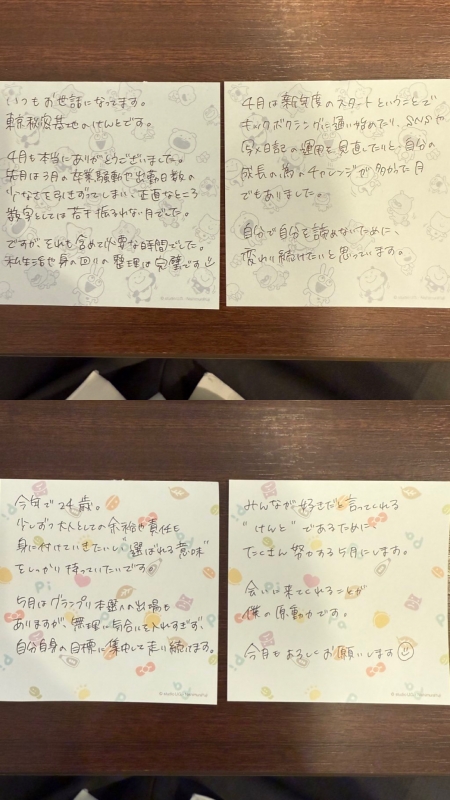 いつもお世話になってます。
東京秘密基地のけんとです。
4月も本当にありがとうございました。
先月は3月の卒業騒動や出勤日数の
少なさを引きずってしまい、正直なところ
数字としては若干振るわない月でした。
ですが、それも含めて必要な時間でした。
私生活や身の回りの整理は完璧です
4月は新年度のスタートということで
キックボクシングに通い始めたり、SNSや
写メ日記の運用を見直したりと、自分の
成長の為のチャレンジが多かった月
でもありました。
自分で自分を諦めないために、
変わり続けたいと思っています。
今年で24歳。
少しずつ大人としての余裕や責任も
身に付けていきたいし"選ばれる意味"
をしっかり持っていたいです。
5月はグランプリ本選への出場も
ありますが、無理に気合いを入れすぎず、
自分自身の目標に集中して走り続けます。
みんなが好きだと言ってくれる
"けんと"であるために、
たくさん努力する5月にします。
会いに来てくれることが
僕の原動力です。
今月もよろしくお願いします